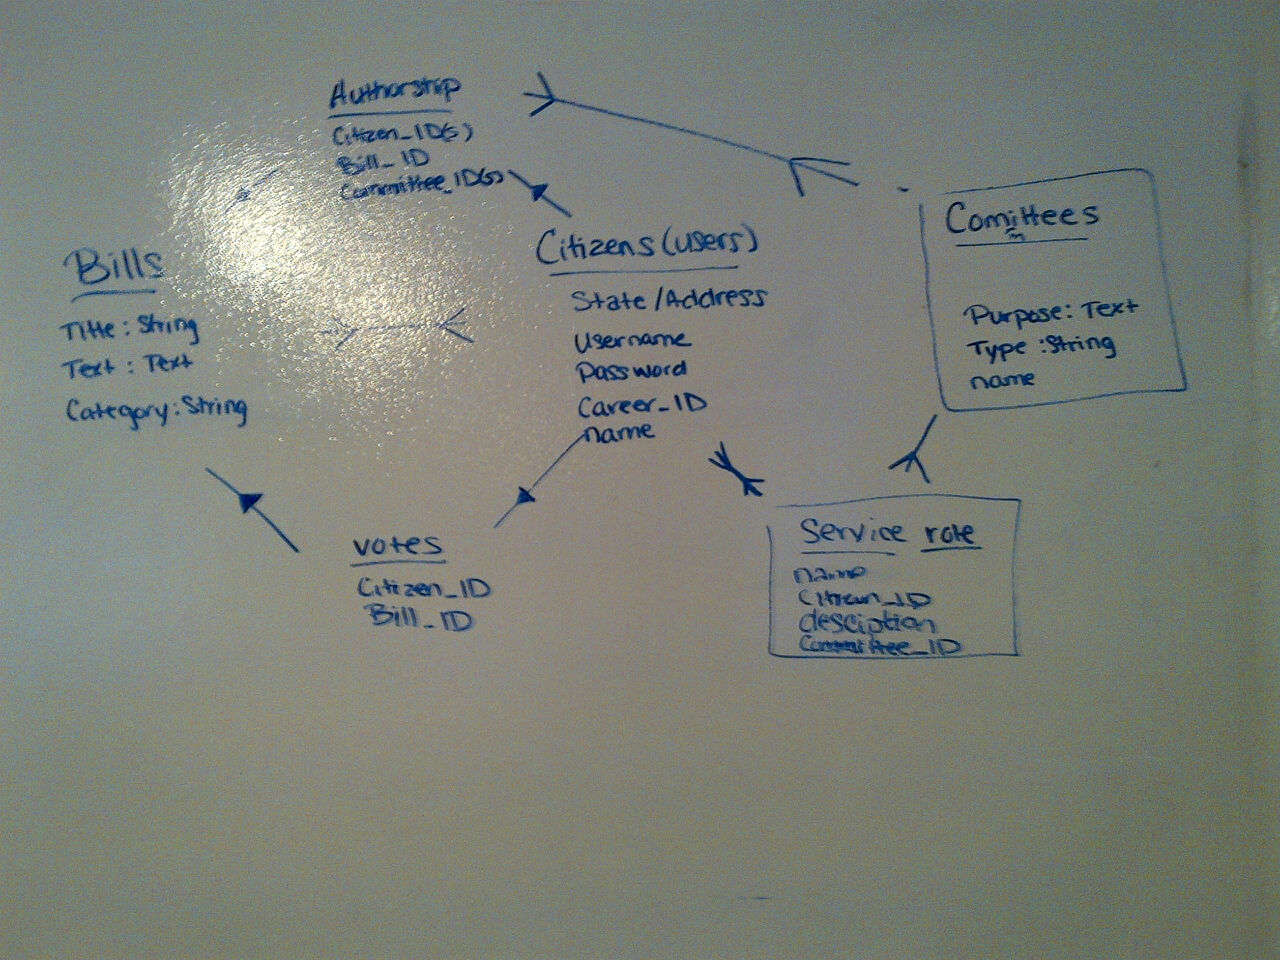 Authorship
Citizen_ID(s)
Bill_ID
Committee_ID(s)
Bills
Title: String
Text: Text
Category: String
Citizens (users)
State/Address
Username
Password
Career_ID
name
Comittees
m
Purpose: Text
Type: String
name
votes
Citizen_ID
Bill_ID
Service role
name
Citizen_ID
desciption
Committee_ID